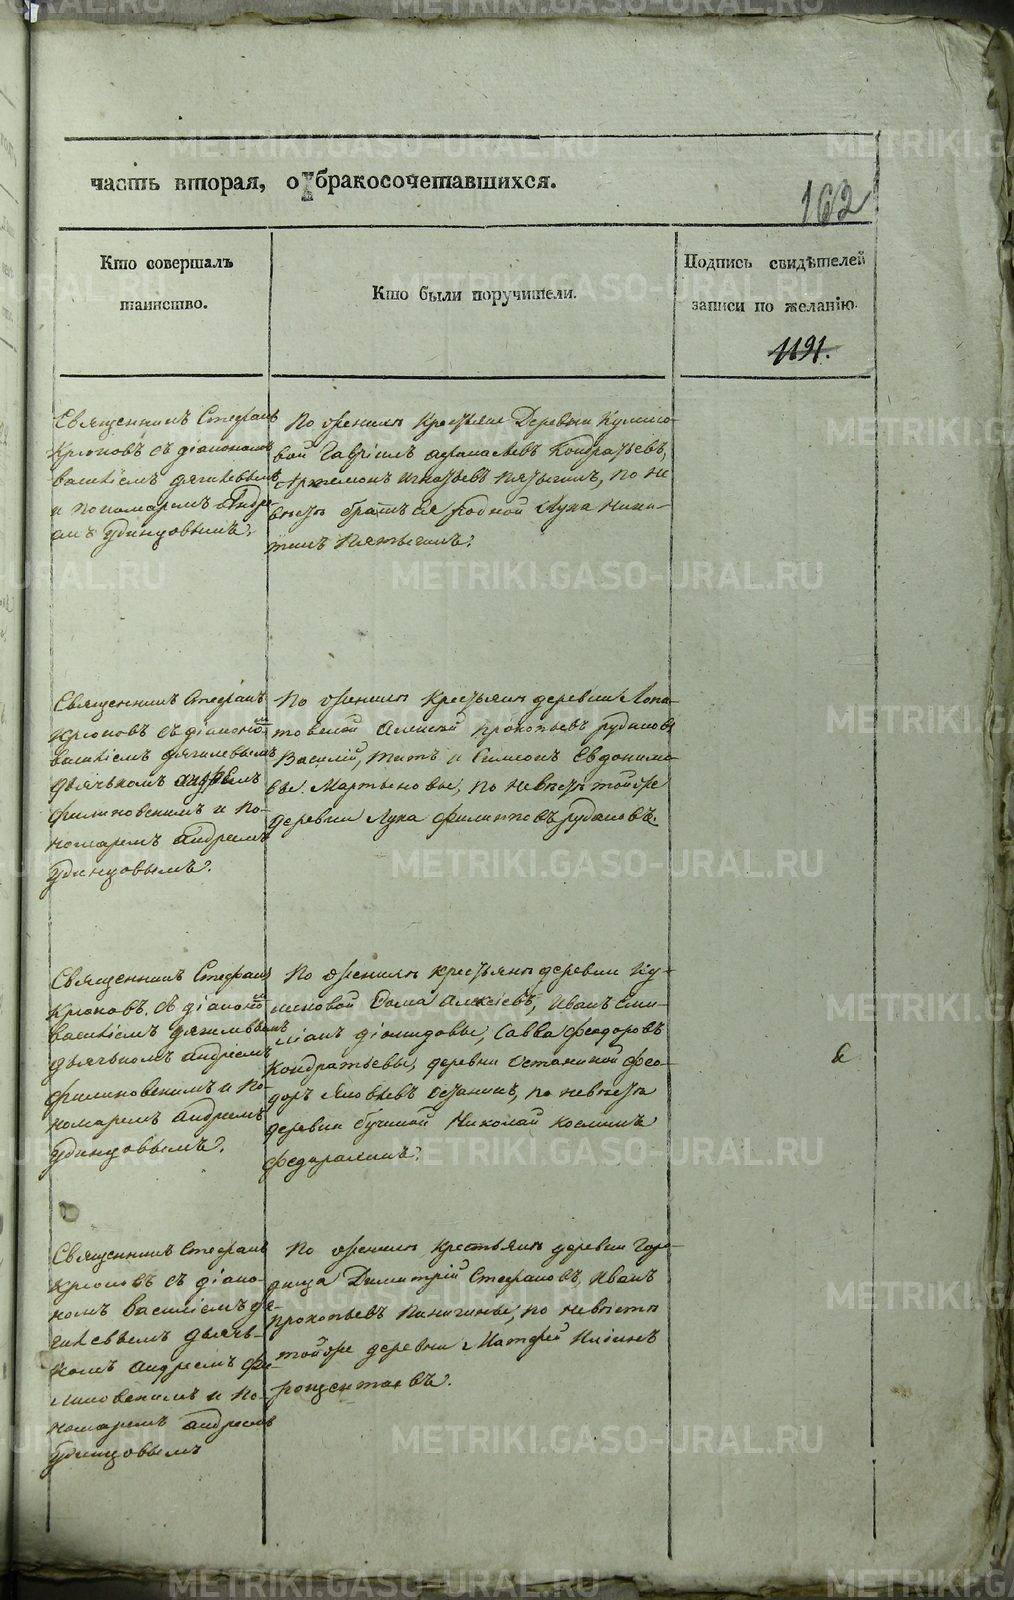 часть вторая, о бракосочетавшихся.
162
Кто совершалъ
таинство.
Кто были поручители.
Подпись свидѣтелей
записи по желанію.
1191.
Священникъ Стефанъ
Крюковъ съ діакономъ
василіемъ дягилевымъ
и пономаремъ Андре-
емъ Удинцовымъ.
По женихѣ Крестьяне Деревни
вой Гавріилъ Афанасьевъ Кондратьевъ,
Артемонъ Игнатьевъ, по не
вѣстѣ братъ Ея родной Лука Ники-
тинъ
Священникъ Стефанъ
Крюковъ съ діакономъ
василіемъ дягилевымъ
дьячькомъ андреемъ
филиновскимъ и по-
номаремъ андреемъ
Удинцовымъ.
По женихѣ крестьяне деревни Лопа-
товской Алексѣй прокопьевъ рудаковъ
Василій, Титъ и Симеонъ Евдокимо-
вы Мартьяновы, по невѣстѣ той же
деревни Лука филипповъ рудаковъ.
Священникъ Стефанъ
Крюковъ съ діакономъ
василіемъ дягилевымъ
дьячькомъ андреемъ
филиновскимъ и по-
номаремъ андреемъ
Удинцовымъ.
По женихѣ крестьяне деревни Ку-
Фома Алексѣевъ, Иванъ Еми-
ліанъ діомидовы, Савва феодоровъ
Кондратьевы, деревни Останиной фео-
доръ Яковлевъ Останинъ, по невѣстѣ
деревни Николай козминъ
Священникъ Стефанъ
Крюковъ съ діако-
номъ василіемъ дя-
гилевымъ дьячь-
комъ андреемъ фи-
линовскимъ и по-
номаремъ андреемъ
Удинцовымъ
По женихѣ крестьяне деревни Горо-
дища Димитрій Стефановъ, Иванъ
прокопьевъ Пинигины, по невѣстѣ
той же деревни Матфей Ильинъ
METRIKI.GASO-URAL.RU